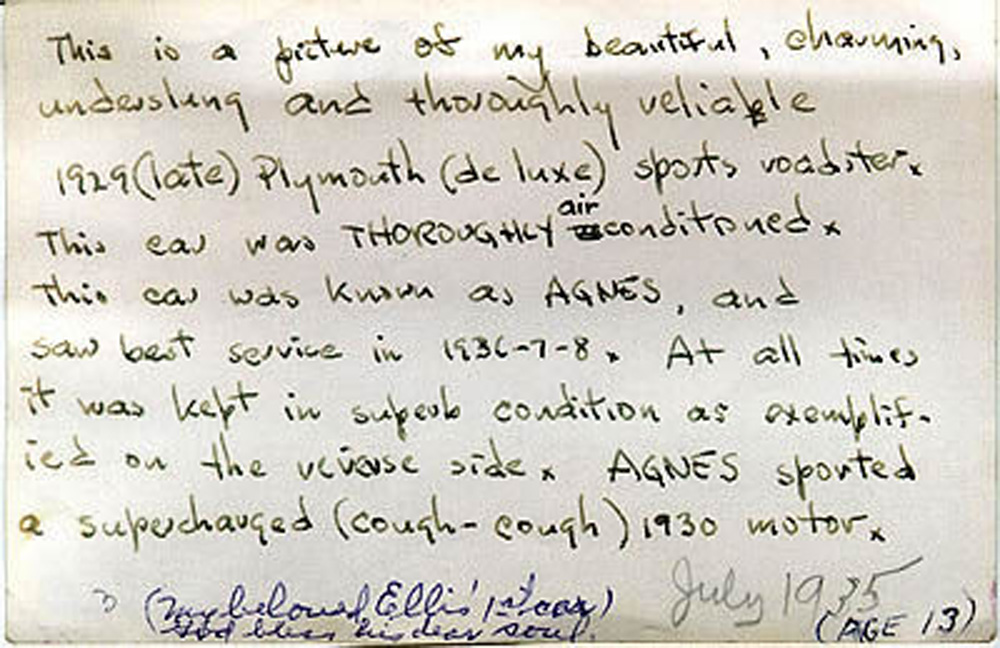 This is a picture of my beautiful, charming,
underslung and thoroughly reliable
1929 (late) Plymouth (de luxe) sports roadster.
This car was THOROUGHLY air conditioned.
This car was known as AGNES, and
saw best service in 1936-7-8. At all times
it was kept in superb condition as exemplif-
ied on the reverse side. AGNES sported
a supercharged (cough-cough) 1930 motor.
(My beloved Ellis' 1st car)
God bless his dear soul.
July 1935
(AGE 13)